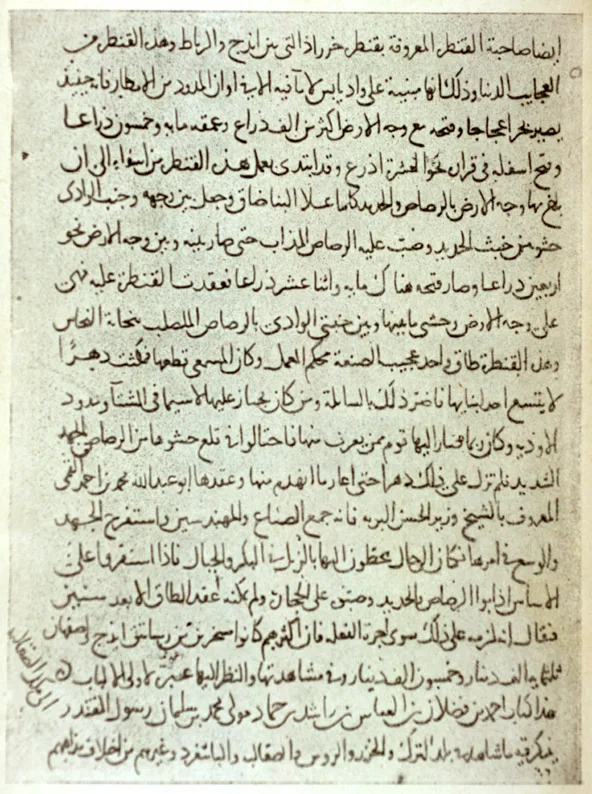 ايضا صاحبة القنطرة المعروفة بقنطرة خرراذ التى بين ايذج والرباط وهذه القنطرة من
العجايب الدنيا وذلك انها مبنية على واد يابس لا ماء فيه الا في اوان المدود من الامطار فانه حينئذ
يصير بحرا عجاجا وفتحه مع وجه الارض اكثر من الف ذراع وعمقه مايه وخمسون ذراعا
وفتح اسفله فى قراره نحو العشرة اذرع وقد ابتدى بعمل هذه القنطرة من اسفله الى ان
بلغ بها وجه الارض بالرصاص والحديد كلما علا البنا ضاق وجعل بين وجهه وجنب الوادى
حشو من خبث الحديد وصب عليه الرصاص المذاب حتى صار بينه وبين وجه الارض نحو
اربعين ذراعا وصار فتحه هناك مايه واثنا عشر ذراعا فعقدت القنطرة عليه فهى
على وجه الارض وحشى ما بينها وبين جنبتى الوادى بالرصاص المصلب بنحاتة النحاس
وهذه القنطرة طاق واحد عجيب الصنعة محكم العمل وكان المسمعى قطعها فمكثت دهرًا
لا يتسع احد لبنايها فاضر ذلك بالسابلة ومن كان يجتاز عليها لا سيما فى الشتا ومدود
الاوديه وكان ربما صار اليها قوم ممن يقرب منها فاحتالوا فى قلع حشوها من الرصاص بالجهد
الشديد فلم تزل على ذلك دهرا حتى اعاد ما انهدم منها وعقدها ابو عبدالله محمد بن احمد القمى
المعروف بالشيخ وزير الحسن البويه فانه جمع الصناع والمهندسين واستفرغ الجهد
والوسع فى امرها فكان الرجال يحطون اليها بالزبل في البكر والحبال فاذا استقروا على
الاساس اذابوا الرصاص بالحديد وصبوه على الحجارة ولم يمكنه عقد الطاق الا بعد سنتين
فيقال انه لزمه على ذلك سوى اجرة الفعلة فان اكثرهم كانوا مسخرين من رساتيق ايذج واصفهان
ثلثمايه الف دينار وخمسون الف دينار وفى مشاهدتها والنظر اليها عبرة لاولى الالباب
هذا كتاب احمد بن فضلان بن العباس بن راشد بن حماد مولى محمد بن سلمان رسول المقتدر
الى ملك الصقالبة
يذكر فيه ما شاهد في بلد الترك والخزر والروس والصقالبة والباشغرد وغيرهم من اختلاف مذاهبهم